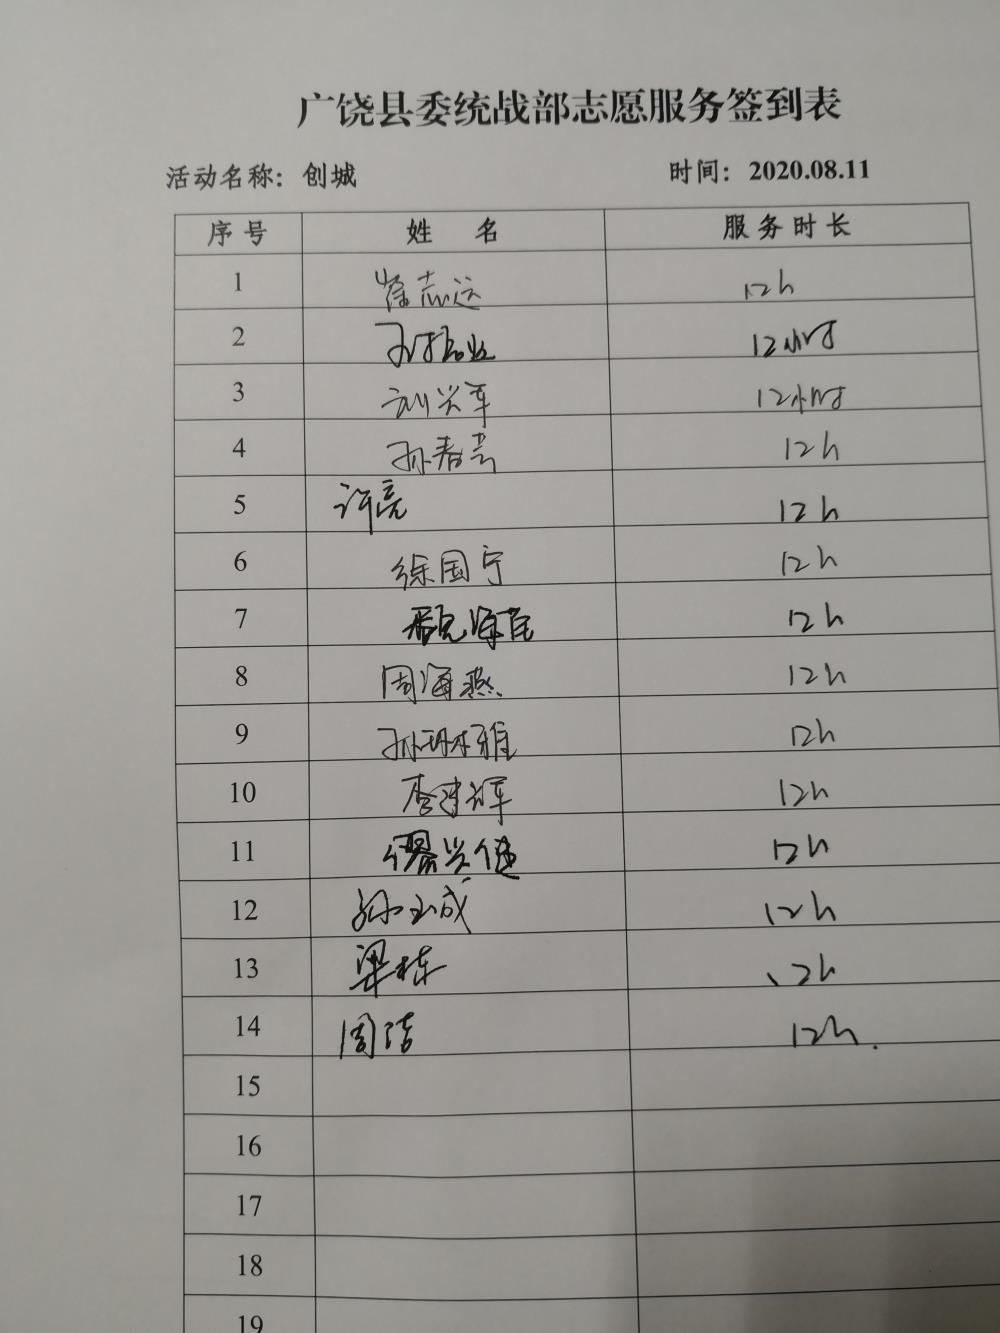 广饶县委统战部志愿服务签到表
活动名称：创城 时间：2020.08.11
序号 姓 名 服务时长
1 志远 12h
2 12小时
3 刘兴军 12小时
4 孙春芸 12h
5 许亮 12h
6 徐国宁 12h
7 12h
8 周海燕 12h
9 孙琳雅 12h
10 李建辉 12h
11 兴健 12h
12 孙玉成 12h
13 梁栋 12h
14 周洁 12h.
15
16
17
18
19